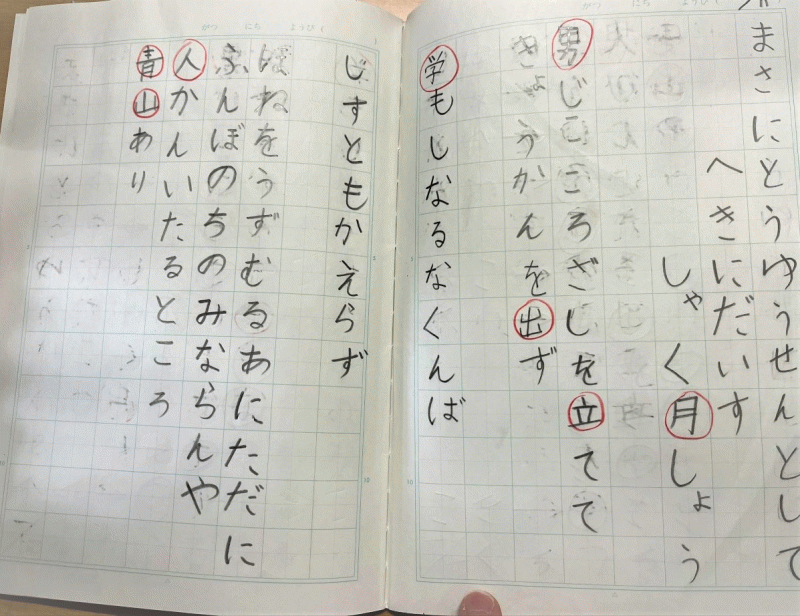 がつ にち ようび
まさにとうゆうせんとして
へきにだいす
しゃく月しょう
男じこころざしを立てて
きょうかんを出ず
学もしなるなくんば
がつ にち ようび
じすともかえらず
ほねをうずむるあにただに
ふんぼのちのみならんや
人かんいたるところ
青山あり